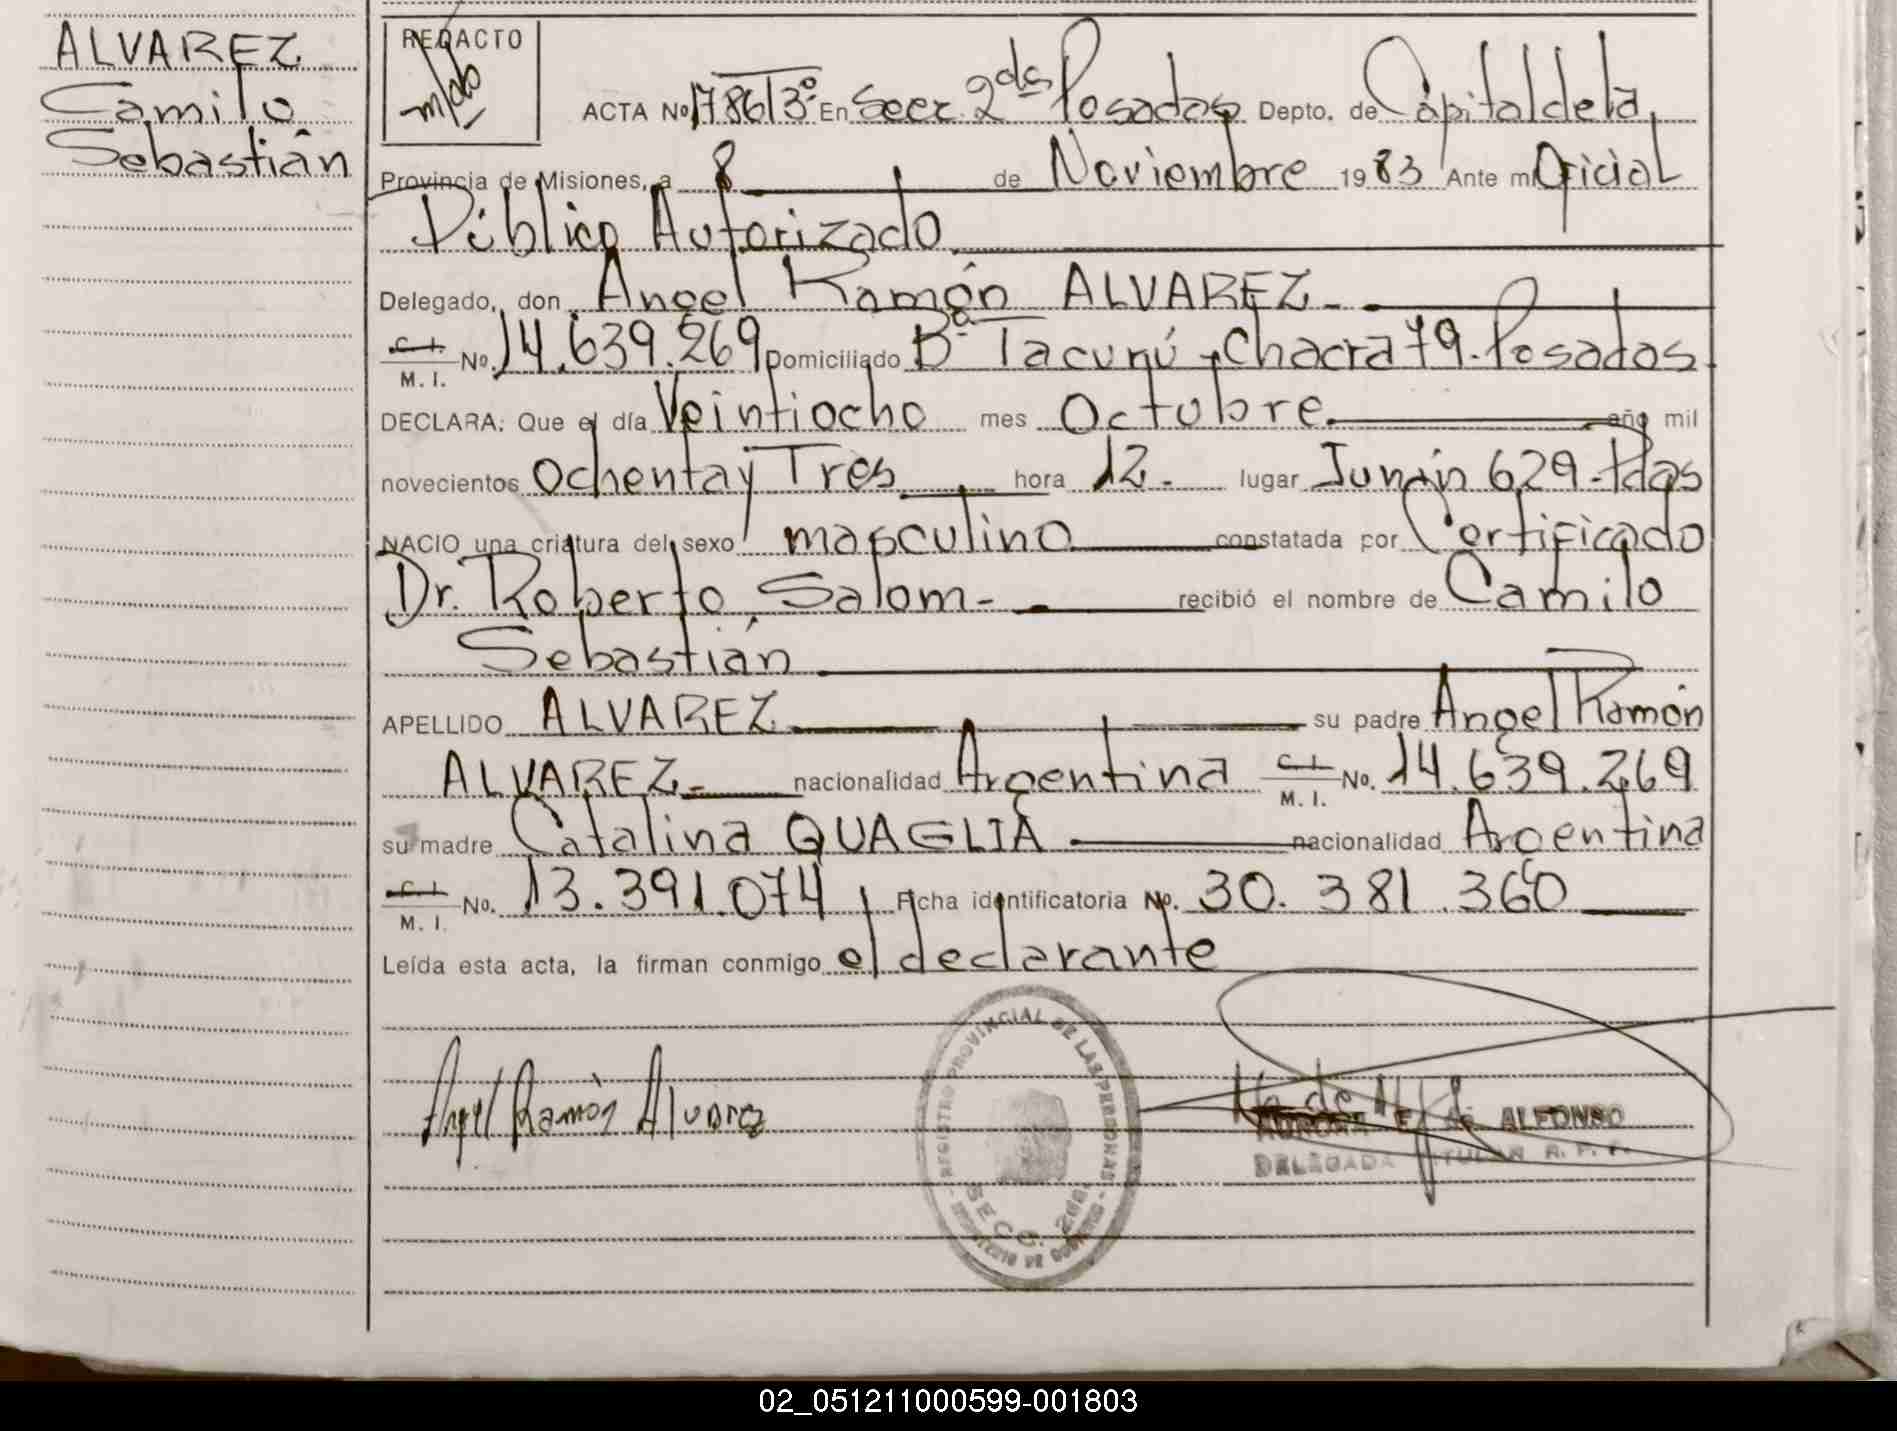 ALVAREZ
Camilo
Sebastián
REDACTO
ACTA Nº 1786/3º En Secc. 2da Posadas Depto. de Capital de la
Provincia de Misiones, a 8 de Noviembre 1983 Ante mi Oficial
Público Autorizado
Delegado, don Angel Ramón ALVAREZ
C. I.
M. I. No. 14.639.269 Domiciliado Bº Tacurú - Chacra 79. Posadas
DECLARA: Que el día Veintiocho mes Octubre año mil
novecientos Ochenta y Tres hora 12. lugar Junín 629 - Pdas
NACIO una criatura del sexo masculino constatada por Certificado
Dr. Roberto Salom - recibió el nombre de Camilo
Sebastián
APELLIDO ALVAREZ su padre Angel Ramón
ALVAREZ nacionalidad Argentina C. I. M. I. No. 14.639.269
su madre Catalina QUAGLIA nacionalidad Argentina
C. I.
M. I. No. 13.391.074 Ficha identificatoria No. 30.381.360
Leída esta acta, la firman conmigo el declarante
Angel Ramón Alvarez
REGISTRO PROVINCIAL DE LAS PERSONAS
SECC. 2da.
MINISTERIO DE GOBIERNO
DE ALFONSO
DELEGADA TITULAR R. P. P.
02_051211000599-001803